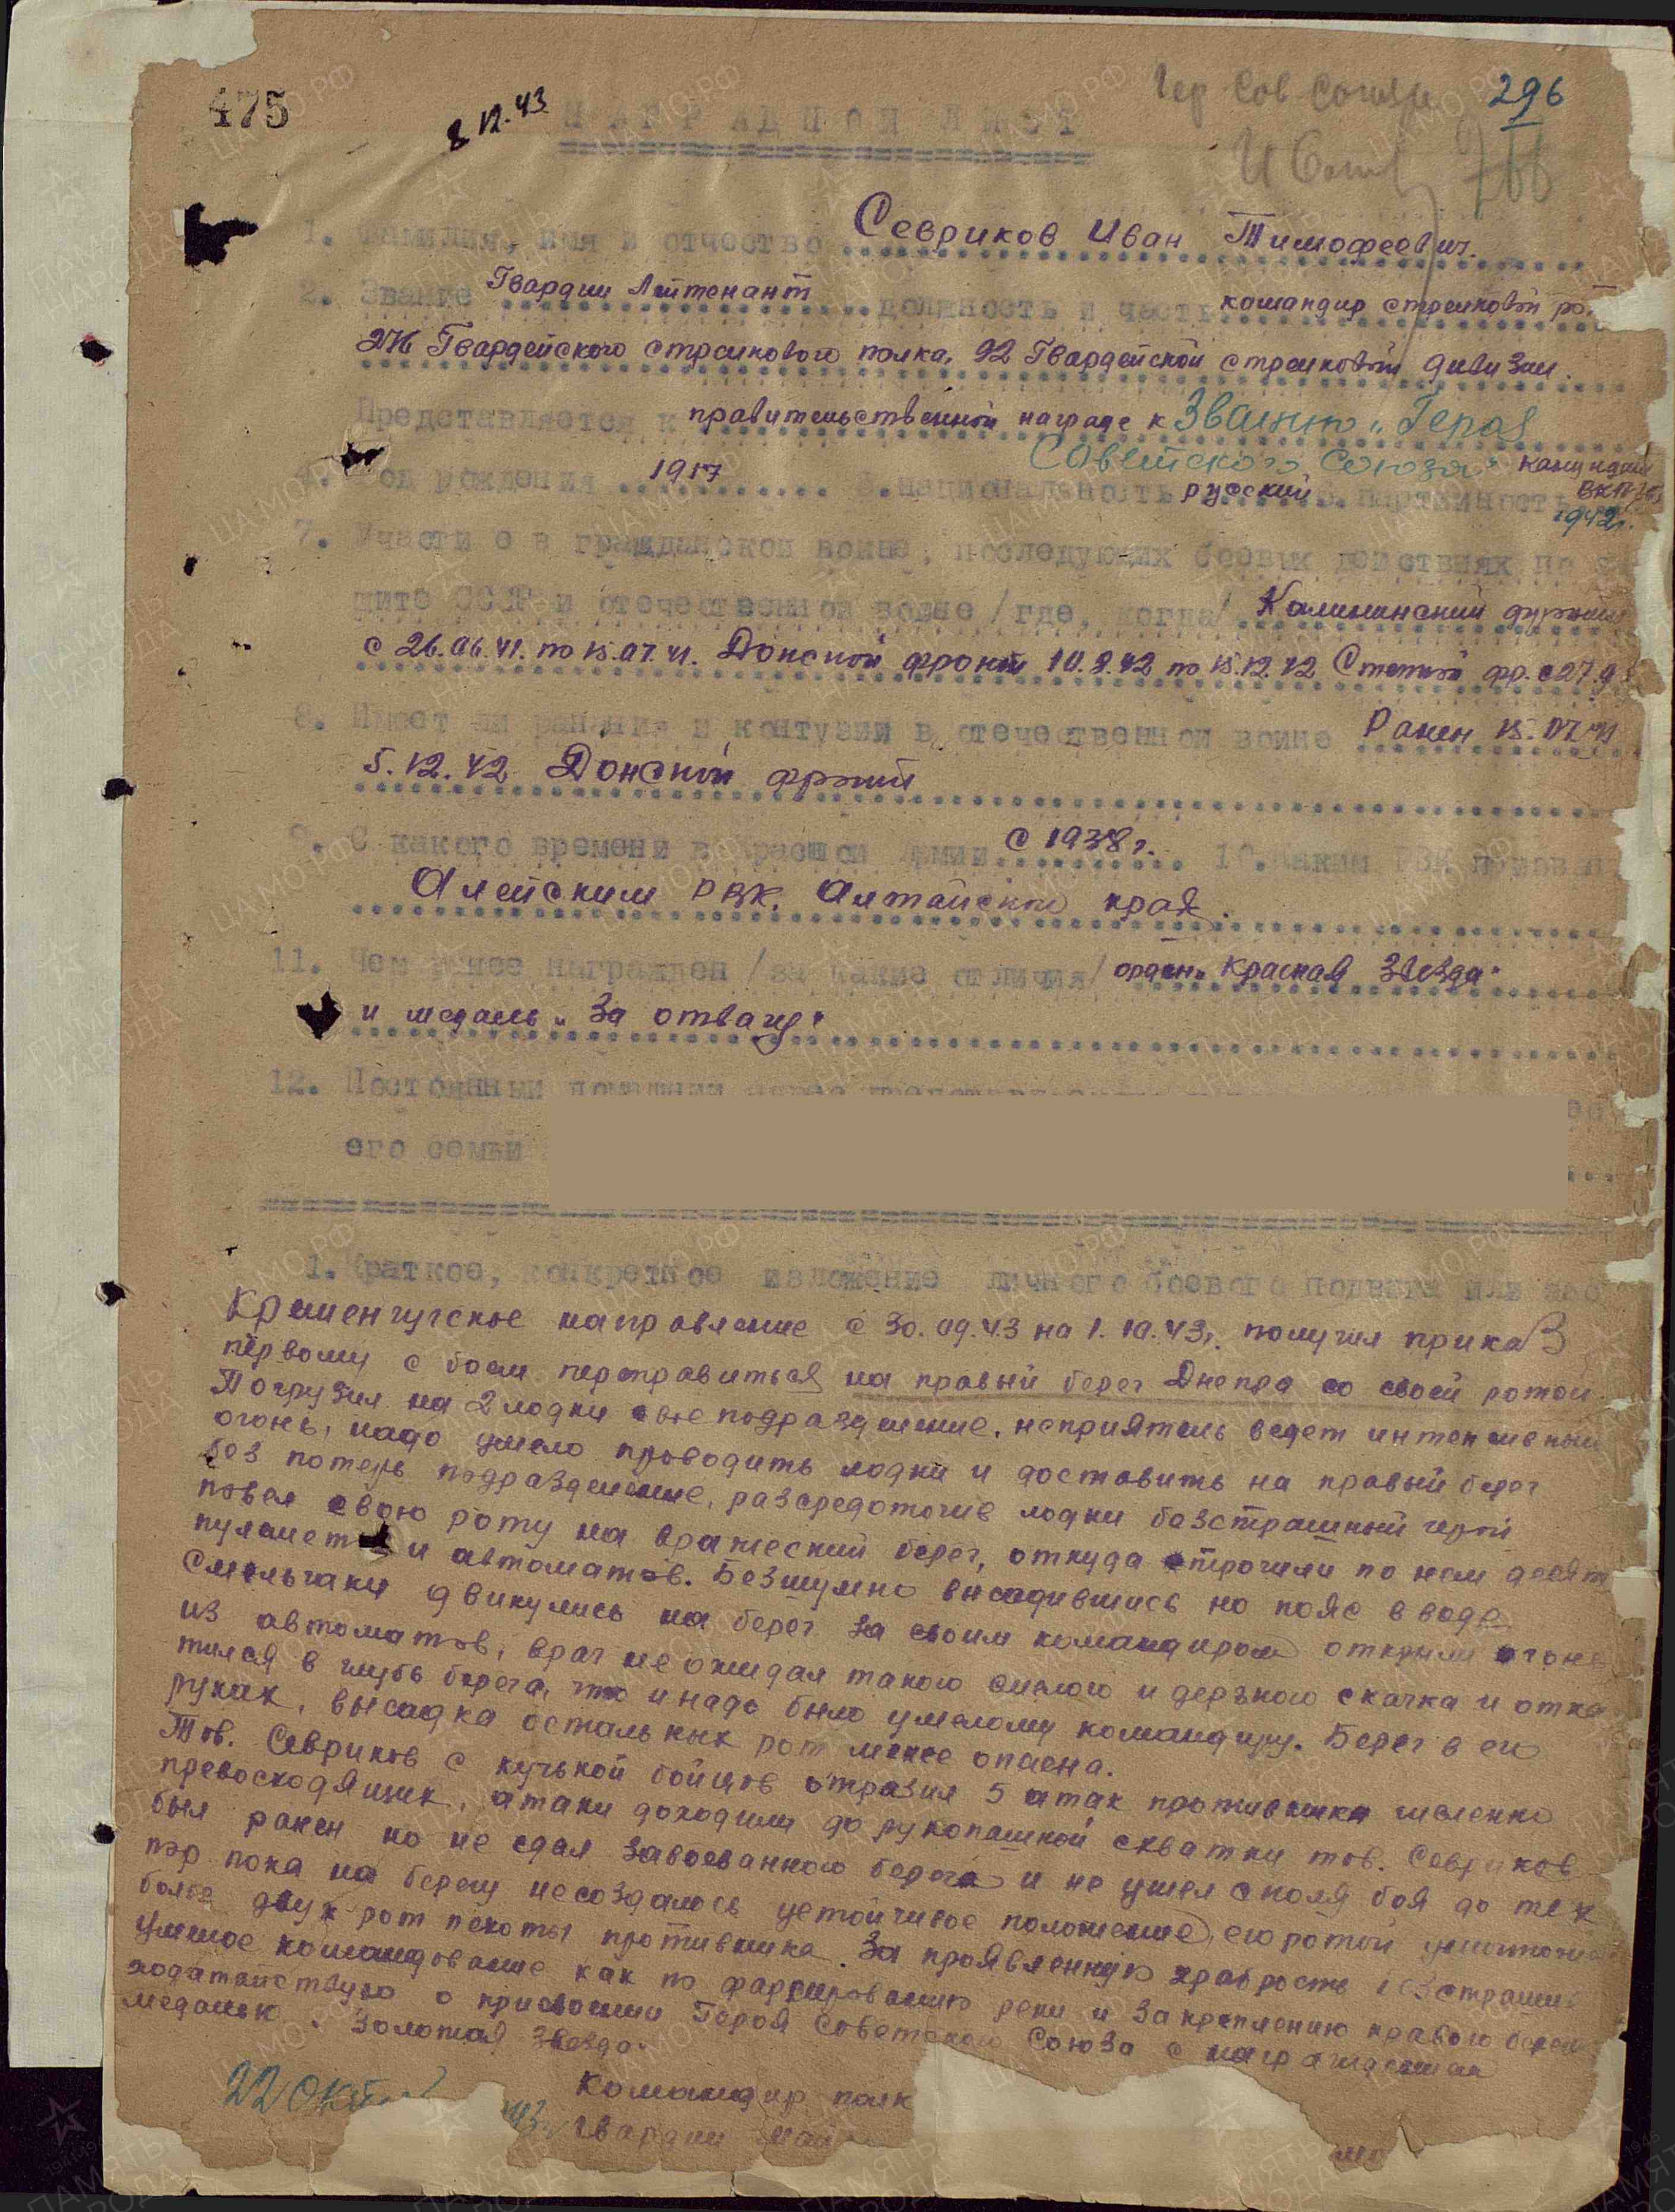 475
8 12.43
Гер Сов Союза
296
НАГРАДНОЙ ЛИСТ
1. Фамилия, имя и отчество Севриков Иван Тимофеевич.
2. Звание Гвардии Лейтенант должность и часть командир стрелковой ро
276 Гвардейского стрелкового полка, 92 Гвардейской стрелковой дивизии.
Представляется к правительственной награде к Званию „Героя
Советского Союза"
4. Год рождения 1917 5. национальность русский 6. партийность кандидат
ВКП/б/
1942г.
7. Участие в гражданской войне, последующих боевых действиях по з
щите СССР и отечественной войне /где, когда/ Калининский фронт
с 26.06.41. по 15.07.41. Донской фронт 10.9.42 по 15.12.42 Степной фр. с 27.9
8. Имеет ли ранения и контузии в отечественной войне Ранен 15.07.41
5.12.42 Донской фронт
9. С какого времени в Красной Армии с 1938г. 10. Каким РВК призван
Алейским РВК. Алтайского края.
11. Чем ранее награжден /за какие отличия/ орден „Красная Звезда"
и медаль „За отвагу"
12. Постоянный домашний адрес
его семьи
1. Краткое, конкретное изложение личного боевого подвига или зас
Кременчугское направление с 30.09.43 на 1.10.43г. получил приказ
первому с боем переправиться на правый берег Днепра со своей ротой.
Погрузил на 2 лодки свое подразделение, неприятель ведет интенсивный
огонь, надо умело проводить лодки и доставить на правый берег
без потерь подразделение, разсредоточив лодки безстрашный герой
повел свою роту на вражеский берег, откуда строчили по нем десят
пулеметов и автоматов. Безшумно высадившись по пояс в воде
Смельчаки двинулись на берег за своим командиром открыли огонь
из автоматов, враг не ожидал такого смелого и дерзкого скачка и отка
тился в глубь берега, что и надо было умелому командиру. Берег в его
руках, высадка остальных рот менее опасна.
Тов. Севриков с кучькой бойцов отразил 5 атак противника численно
превосходящих, атаки доходили до рукопашной схватки тов. Севриков
был ранен но не сдал завоеванного берега и не ушел с поля боя до тех
пор пока на берегу несоздалось устойчивое положение, его ротой уничтожено
более двух рот пехоты противника. За проявленную храбрость безстрашие
умелое командование как по форсированию реки и закреплению правого берега
ходатайствую о присвоении Героя Советского Союза с награждением
медалью „Золотая Звезда"
22 окт 43г.
Командир полк
Гвардии май